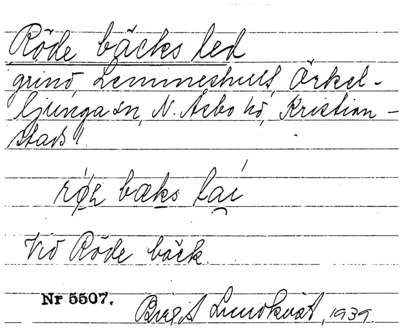 Röde bäcks led
grind, Lemmeshult, Örkel-
ljunga sn, N. Åsbo hd, Kristian-
stads l
røz bæks lai
Vid Röde bäck
Nr 5507.
Birgit Lundkvist, 1939